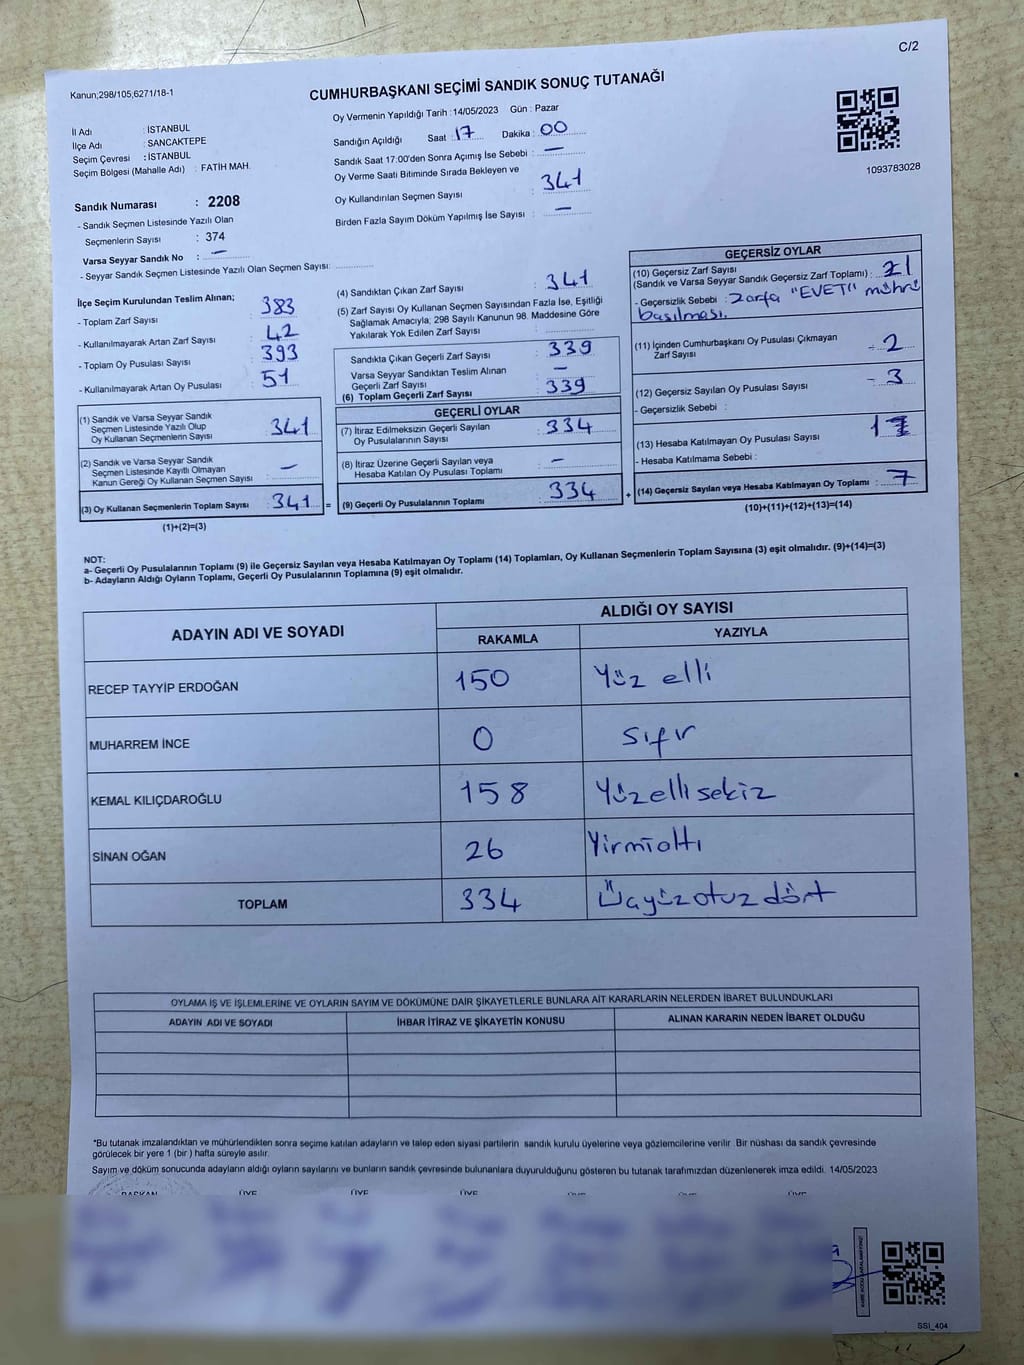 C/2
Kanun;298/105,6271/18-1
CUMHURBAŞKANI SEÇİMİ SANDIK SONUÇ TUTANAĞI
İl Adı : İSTANBUL
İlçe Adı : SANCAKTEPE
Seçim Çevresi : İSTANBUL
Seçim Bölgesi (Mahalle Adı) : FATİH MAH.
Sandık Numarası : 2208
- Sandık Seçmen Listesinde Yazılı Olan
Seçmenlerin Sayısı : 374
Varsa Seyyar Sandık No : —
- Seyyar Sandık Seçmen Listesinde Yazılı Olan Seçmen Sayısı:
Oy Vermenin Yapıldığı Tarih : 14/05/2023 Gün : Pazar
Sandığın Açıldığı Saat : 17 Dakika : 00
Sandık Saat 17:00'den Sonra Açımış İse Sebebi : —
Oy Verme Saati Bitiminde Sırada Bekleyen ve
Oy Kullandırılan Seçmen Sayısı : 341
Birden Fazla Sayım Döküm Yapılmış İse Sayısı : —
1093783028
İlçe Seçim Kurulundan Teslim Alınan;
- Toplam Zarf Sayısı : 383
- Kullanılmayarak Artan Zarf Sayısı : 42
- Toplam Oy Pusulası Sayısı : 393
- Kullanılmayarak Artan Oy Pusulası : 51
(1) Sandık ve Varsa Seyyar Sandık
Seçmen Listesinde Yazılı Olup
Oy Kullanan Seçmenlerin Sayısı : 341
(2) Sandık ve Varsa Seyyar Sandık
Seçmen Listesinde Kayıtlı Olmayan
Kanun Gereği Oy Kullanan Seçmen Sayısı : —
(3) Oy Kullanan Seçmenlerin Toplam Sayısı : 341 =
(1)+(2)=(3)
(4) Sandıktan Çıkan Zarf Sayısı : 341
(5) Zarf Sayısı Oy Kullanan Seçmen Sayısından Fazla İse, Eşitliği
Sağlamak Amacıyla; 298 Sayılı Kanunun 98. Maddesine Göre
Yakılarak Yok Edilen Zarf Sayısı :
Sandıkta Çıkan Geçerli Zarf Sayısı : 339
Varsa Seyyar Sandıktan Teslim Alınan
Geçerli Zarf Sayısı : —
(6) Toplam Geçerli Zarf Sayısı : 339
GEÇERLİ OYLAR
(7) İtiraz Edilmeksizin Geçerli Sayılan
Oy Pusulalarının Sayısı : 334
(8) İtiraz Üzerine Geçerli Sayılan veya
Hesaba Katılan Oy Pusulası Toplamı : —
(9) Geçerli Oy Pusulalarının Toplamı : 334 +
GEÇERSİZ OYLAR
(10) Geçersiz Zarf Sayısı
(Sandık ve Varsa Seyyar Sandık Geçersiz Zarf Toplamı) :
- Geçersizlik Sebebi : Zarfa "EVET" mührü
basılması.
(11) İçinden Cumhurbaşkanı Oy Pusulası Çıkmayan
Zarf Sayısı : 2
(12) Geçersiz Sayılan Oy Pusulası Sayısı : 3
- Geçersizlik Sebebi :
(13) Hesaba Katılmayan Oy Pusulası Sayısı :
- Hesaba Katılmama Sebebi :
(14) Geçersiz Sayılan veya Hesaba Katılmayan Oy Toplamı : 7
(10)+(11)+(12)+(13)=(14)
NOT:
a- Geçerli Oy Pusulalarının Toplamı (9) ile Geçersiz Sayılan veya Hesaba Katılmayan Oy Toplamı (14) Toplamları, Oy Kullanan Seçmenlerin Toplam Sayısına (3) eşit olmalıdır. (9)+(14)=(3)
b- Adayların Aldığı Oyların Toplamı, Geçerli Oy Pusulalarının Toplamına (9) eşit olmalıdır.
ADAYIN ADI VE SOYADI
ALDIĞI OY SAYISI
RAKAMLA YAZIYLA
RECEP TAYYİP ERDOĞAN 150 Yüz elli
MUHARREM İNCE 0 Sıfır
KEMAL KILIÇDAROĞLU 158 Yüzellisekiz
SİNAN OĞAN 26 Yirmialtı
TOPLAM 334 Üçyüzotuzdört
OYLAMA İŞ VE İŞLEMLERİNE VE OYLARIN SAYIM VE DÖKÜMÜNE DAİR ŞİKAYETLERLE BUNLARA AİT KARARLARIN NELERDEN İBARET BULUNDUKLARI
ADAYIN ADI VE SOYADI İHBAR İTİRAZ VE ŞİKAYETİN KONUSU ALINAN KARARIN NEDEN İBARET OLDUĞU
*Bu tutanak imzalandıktan ve mühürlendikten sonra seçime katılan adayların ve talep eden siyasi partilerin sandık kurulu üyelerine veya gözlemcilerine verilir. Bir nüshası da sandık çevresinde
görülecek bir yere 1 (bir) hafta süreyle asılır.
Sayım ve döküm sonucunda adayların aldığı oyların sayılarını ve bunların sandık çevresinde bulunanlara duyurulduğunu gösteren bu tutanak tarafımızdan düzenlenerek imza edildi. 14/05/2023
BAŞKAN ÜYE ÜYE ÜYE ÜYE ÜYE ÜYE
SSİ_404